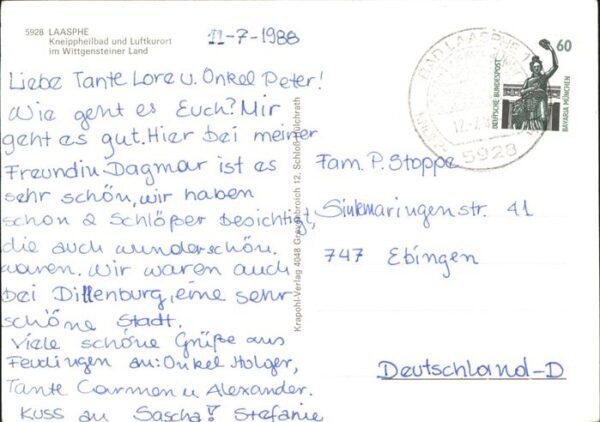 5928 LAASPHE
Kneippheilbad und Luftkurort
im Wittgensteiner Land
11-7-1988
Liebe Tante Lore u. Onkel Peter!
Wie geht es Euch? Mir
geht es gut. Hier bei meiner
Freundin Dagmar ist es
sehr schön, wir haben
schon 2 Schlößer besichtigt,
die auch wunderschön
waren. Wir waren auch
bei Dillenburg, eine sehr
schöne Stadt.
Viele schöne Grüße aus
Feudingen an: Onkel Holger,
Tante Carmen u Alexander.
Kuss an Sascha! Stefanie
Krapohl-Verlag 4048 Grevenbroich 12, Schloß Hülchrath
BAD LAASPHE 1
12.7.
5928
60
DEUTSCHE BUNDESPOST
BAVARIA MÜNCHEN
Fam. P. Stoppe
Sinkmaringenstr. 41
747 Ebingen
Deutschland-D